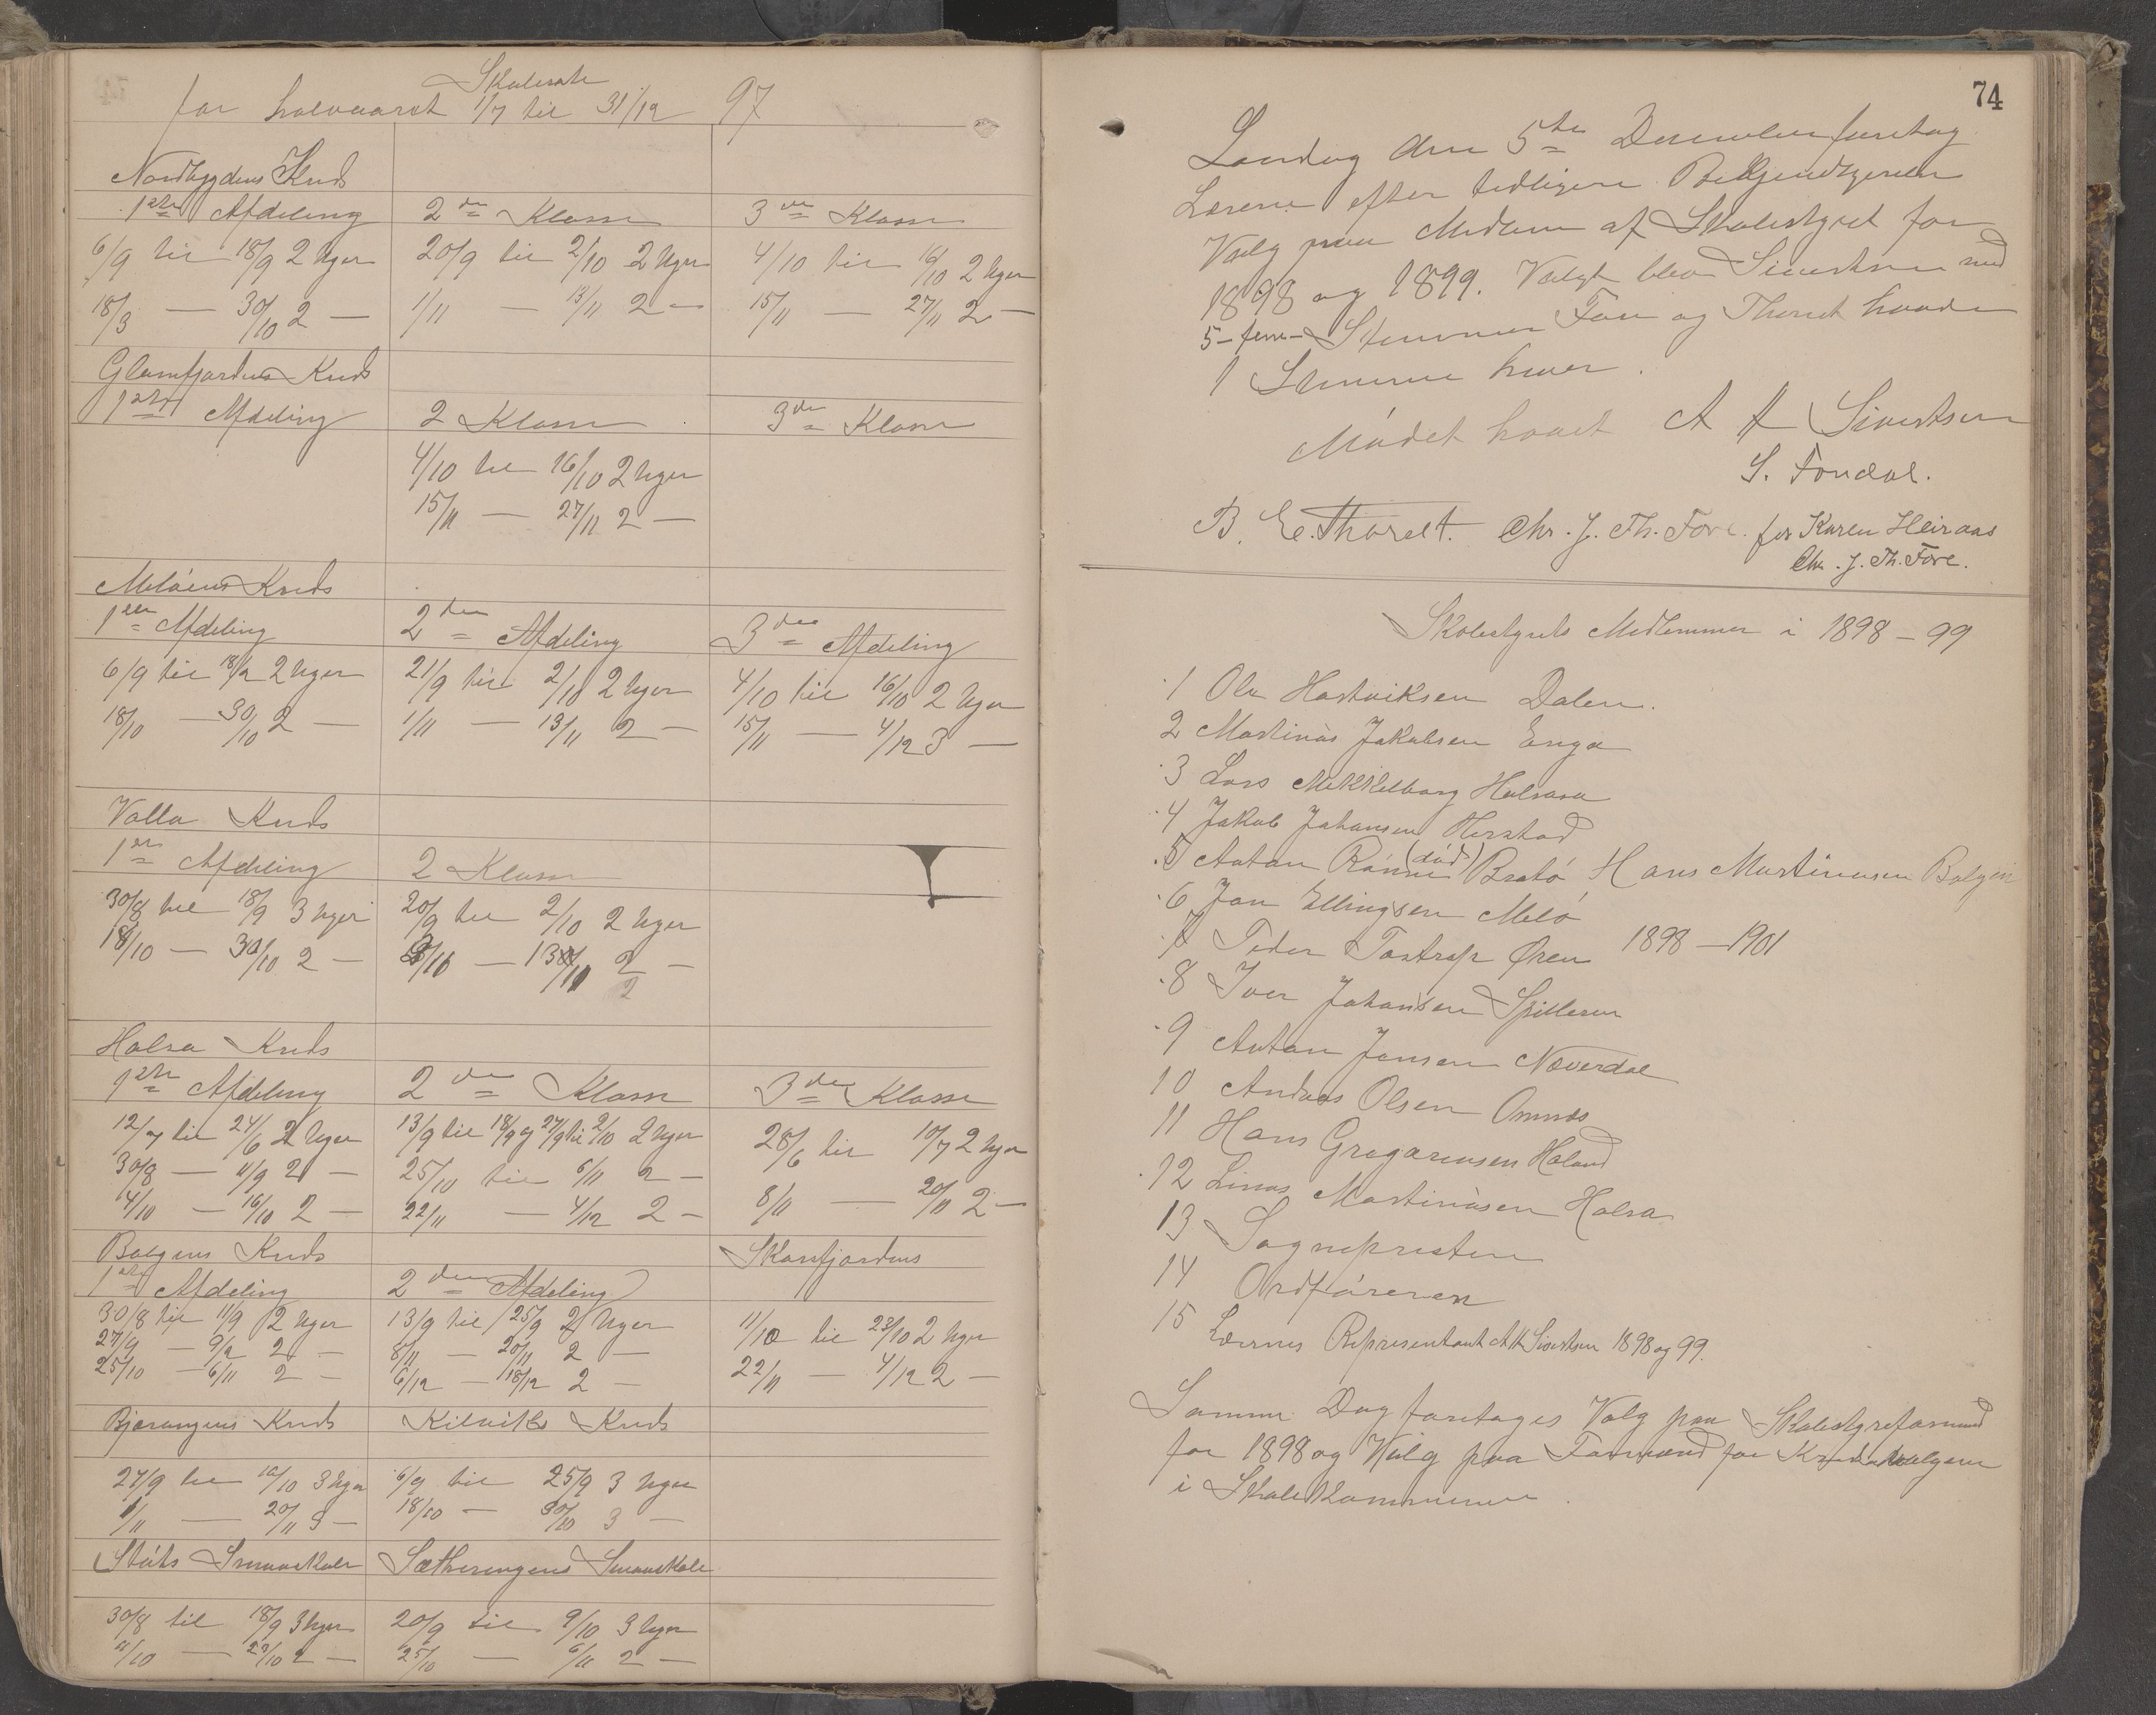 Skolerute
for halvaaret 1/7 til 31/12 97
Nordbygdens Kreds
1ste Afdeling 2den Klasse 3die Klasse
6/9 til 18/9 2 Uger 20/9 til 2/10 2 Uger 4/10 til 16/10 2 Uger
18/3 — 30/10 2 — 1/11 — 13/11 2 — 15/11 — 27/11 2 —
Glomfjordens Kreds
1ste Afdeling 2 Klasse 3die Klasse
4/10 til 16/10 2 Uger
15/11 — 27/11 2 —
Meløens Kreds
1ste Afdeling 2den Afdeling 3die Afdeling
6/9 til 18/9 2 Uger 21/9 til 2/10 2 Uger 4/10 til 16/10 2 Uger
18/10 — 30/10 2 — 1/11 — 13/11 2 — 15/11 — 4/12 3 —
Valla Kreds
1ste Afdeling 2 Klasse
30/8 til 18/9 3 Uger 20/9 til 2/10 2 Uger
18/10 — 30/10 2 — 2 —
2
Halsa Kreds
1ste Afdeling 2den Klasse 3die Klasse
12/7 til 24/6 2 Uger 13/9 til 18/9 og 27/9 til 2/10 2 Uger 28/6 til 10/7 2 Uger
30/8 — 11/9 2 — 25/10 til 6/11 2 — 8/11 — 20/11 2 —
4/10 — 16/10 2 — 22/11 — 4/12 2 —
Bolgens Kreds Skarsfjordens
1ste Afdeling 2den Afdeling
30/8 til 11/9 2 Uger 13/9 til 25/9 2 Uger 11/10 til 23/10 2 Uger
27/9 — 9/2 2 — 8/11 — 20/11 2 — 22/11 — 4/12 2 —
25/10 — 6/11 2 — 6/12 — 18/12 2 —
Bjerangens Kreds Kilviks Kreds
27/9 til 16/10 3 Uger 6/9 til 25/9 3 Uger
1/11 — 20/11 3 — 18/10 — 30/10 3 —
Støts Smaaskole Sætherengens Smaaskole
30/8 til 18/9 3 Uger 20/9 til 9/10 3 Uger
11/10 — 23/10 2 — 25/10 — 6/11 2 —
74
Søndag den 5te December foretog
Lærerne efter tidligere Bekjendtgjørelse
Valg paa Medlem af Skolestyret for
1898 og 1899. Valgt blev Sivertsen med
5 – fem – Stemmer Fore og Thoret havde
1 Stemme hver.
Mødet hævet A A Sivertsen
S. Fondal.
B. E. Thorelt. Chr. J. Th. Fore. for Karen Heiraas
Chr. J. Th. Fore.
Skolestyrets Medlemmer i 1898 – 99
1 Ole Hartviksen Dalen.
2 Martinus Jakobsen Enga
3 Lars Mikkelborg Halsaaa
4 Jakob Johansen Herstad
5 Anton Rønne (død) Bratø Hans Martinusen Bolgen
6 Jon Ellingsen Melø
7 Peder Tostrup Øren 1898 — 1901
8 Iver Johansen Spilleren
9 Anton Jensen Neverdal
10 Andreas Olsen Ornnes
11 Hans Gregoriusen Haland
12 Linus Martinusen Halsa
13 Sognepresten
14 Ordføreren
15 Lærernes Representant A A Sivertsen 1898 og 99.
Samme Dag foretages Valg paa Skolestyreformand
for 1898 og Valg paa Formænd for Kredsvalgene
i Skolekommunen.